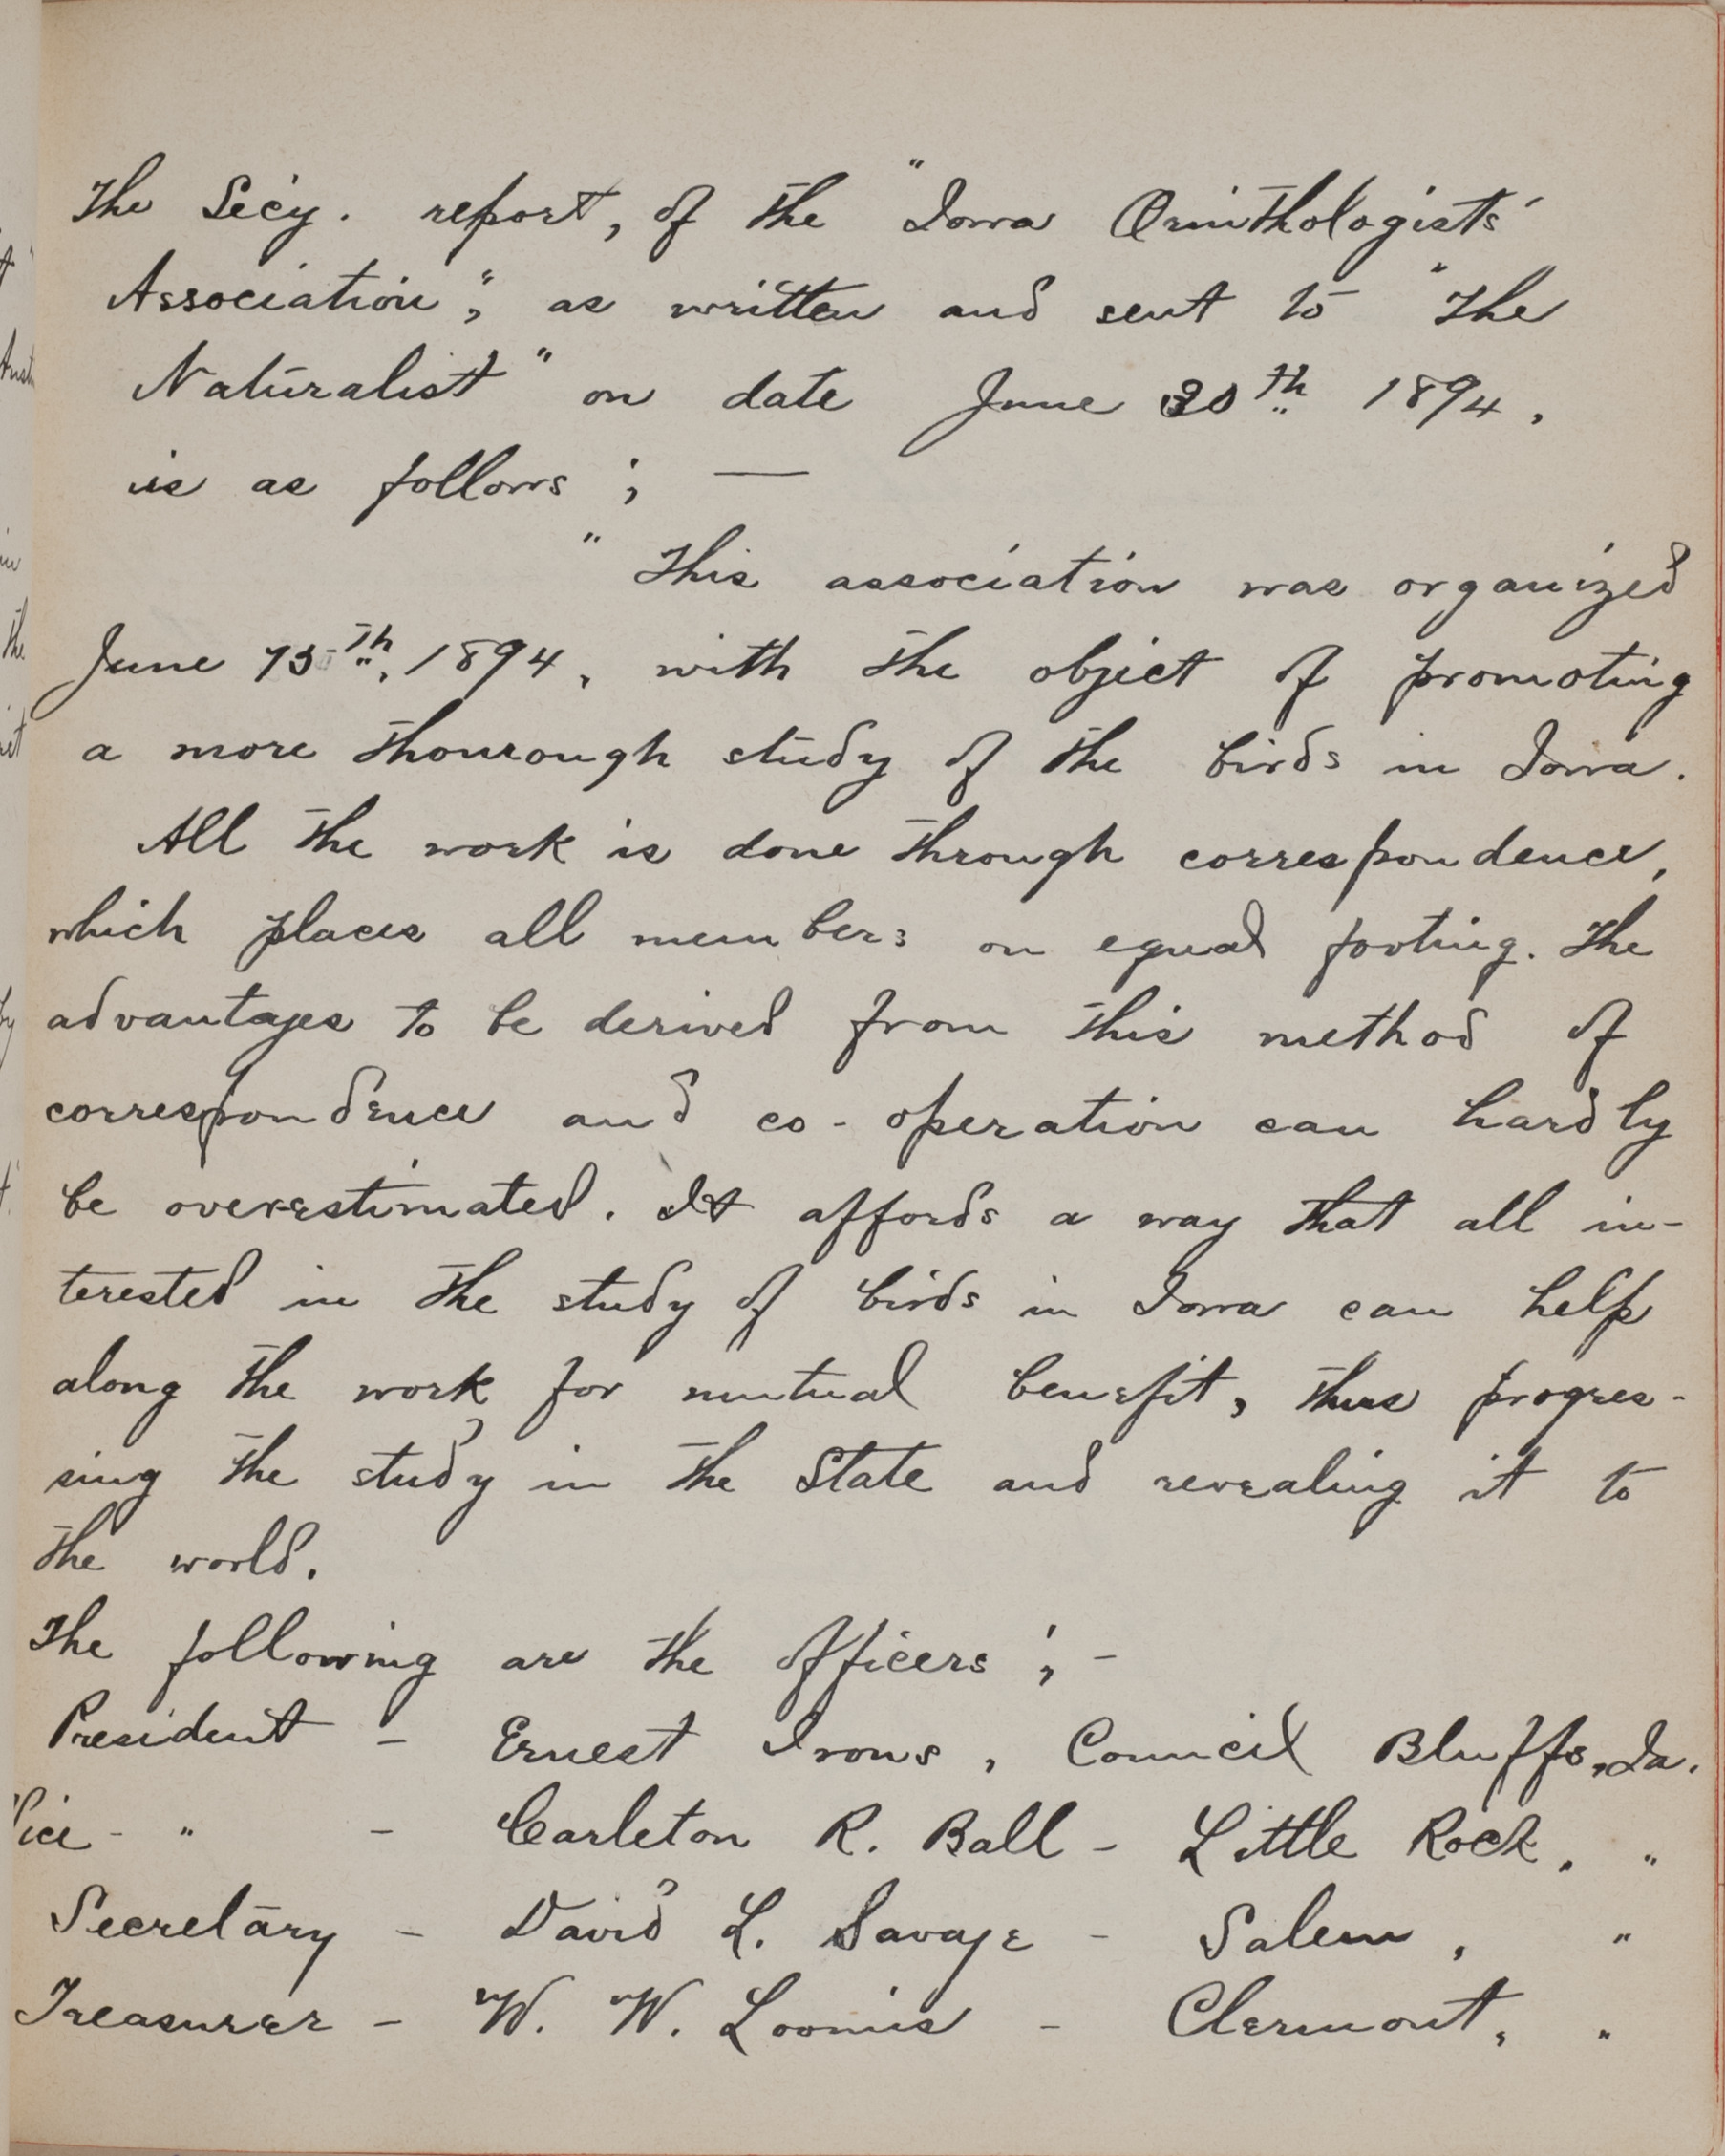 The Sec'y. report, of the "Iowa Ornithologists'
Association", as written and sent to "The
Naturalist" on date June 30th 1894,
is as follows ; —
"This association was organized
June 15th, 1894, with the object of promoting
a more thourough study of the birds in Iowa.
All the work is done through correspondence,
which places all members on equal footing. The
advantages to be derived from this method of
correspondence and co-operation can hardly
be overestimated. It affords a way that all in-
terested in the study of birds in Iowa can help
along the work for mutual benefit, thus progres-
sing the study in the State and revealing it to
the world.
The following are the officers ; -
President - Ernest Irons, Council Bluffs, Ia.
Vice - " - Carleton R. Ball - Little Rock, "
Secretary - David L. Savage - Salem, "
Treasurer - W. W. Loomis - Clermont, "